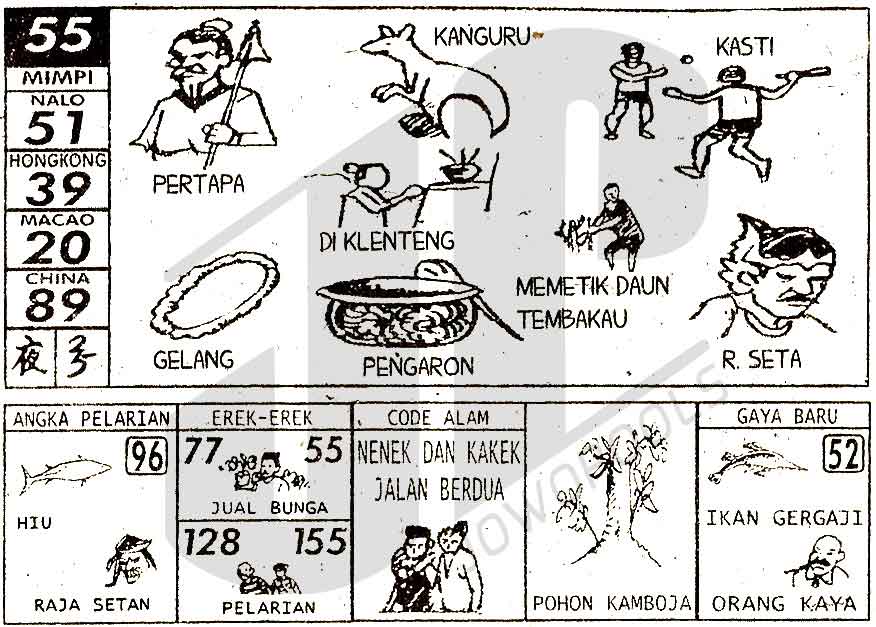 55
MIMPI
NALO
51
HONGKONG
39
MACAO
20
CHINA
89
夜
PERTAPA
KANGURU
KASTI
DI KLENTENG
GELANG
PENGARON
MEMETIK DAUN
TEMBAKAU
R. SETA
ANGKA PELARIAN
96
HIU
RAJA SETAN
EREK-EREK
77 55
JUAL BUNGA
128 155
PELARIAN
CODE ALAM
NENEK DAN KAKEK
JALAN BERDUA
POHON KAMBOJA
GAYA BARU
52
IKAN GERGAJI
ORANG KAYA